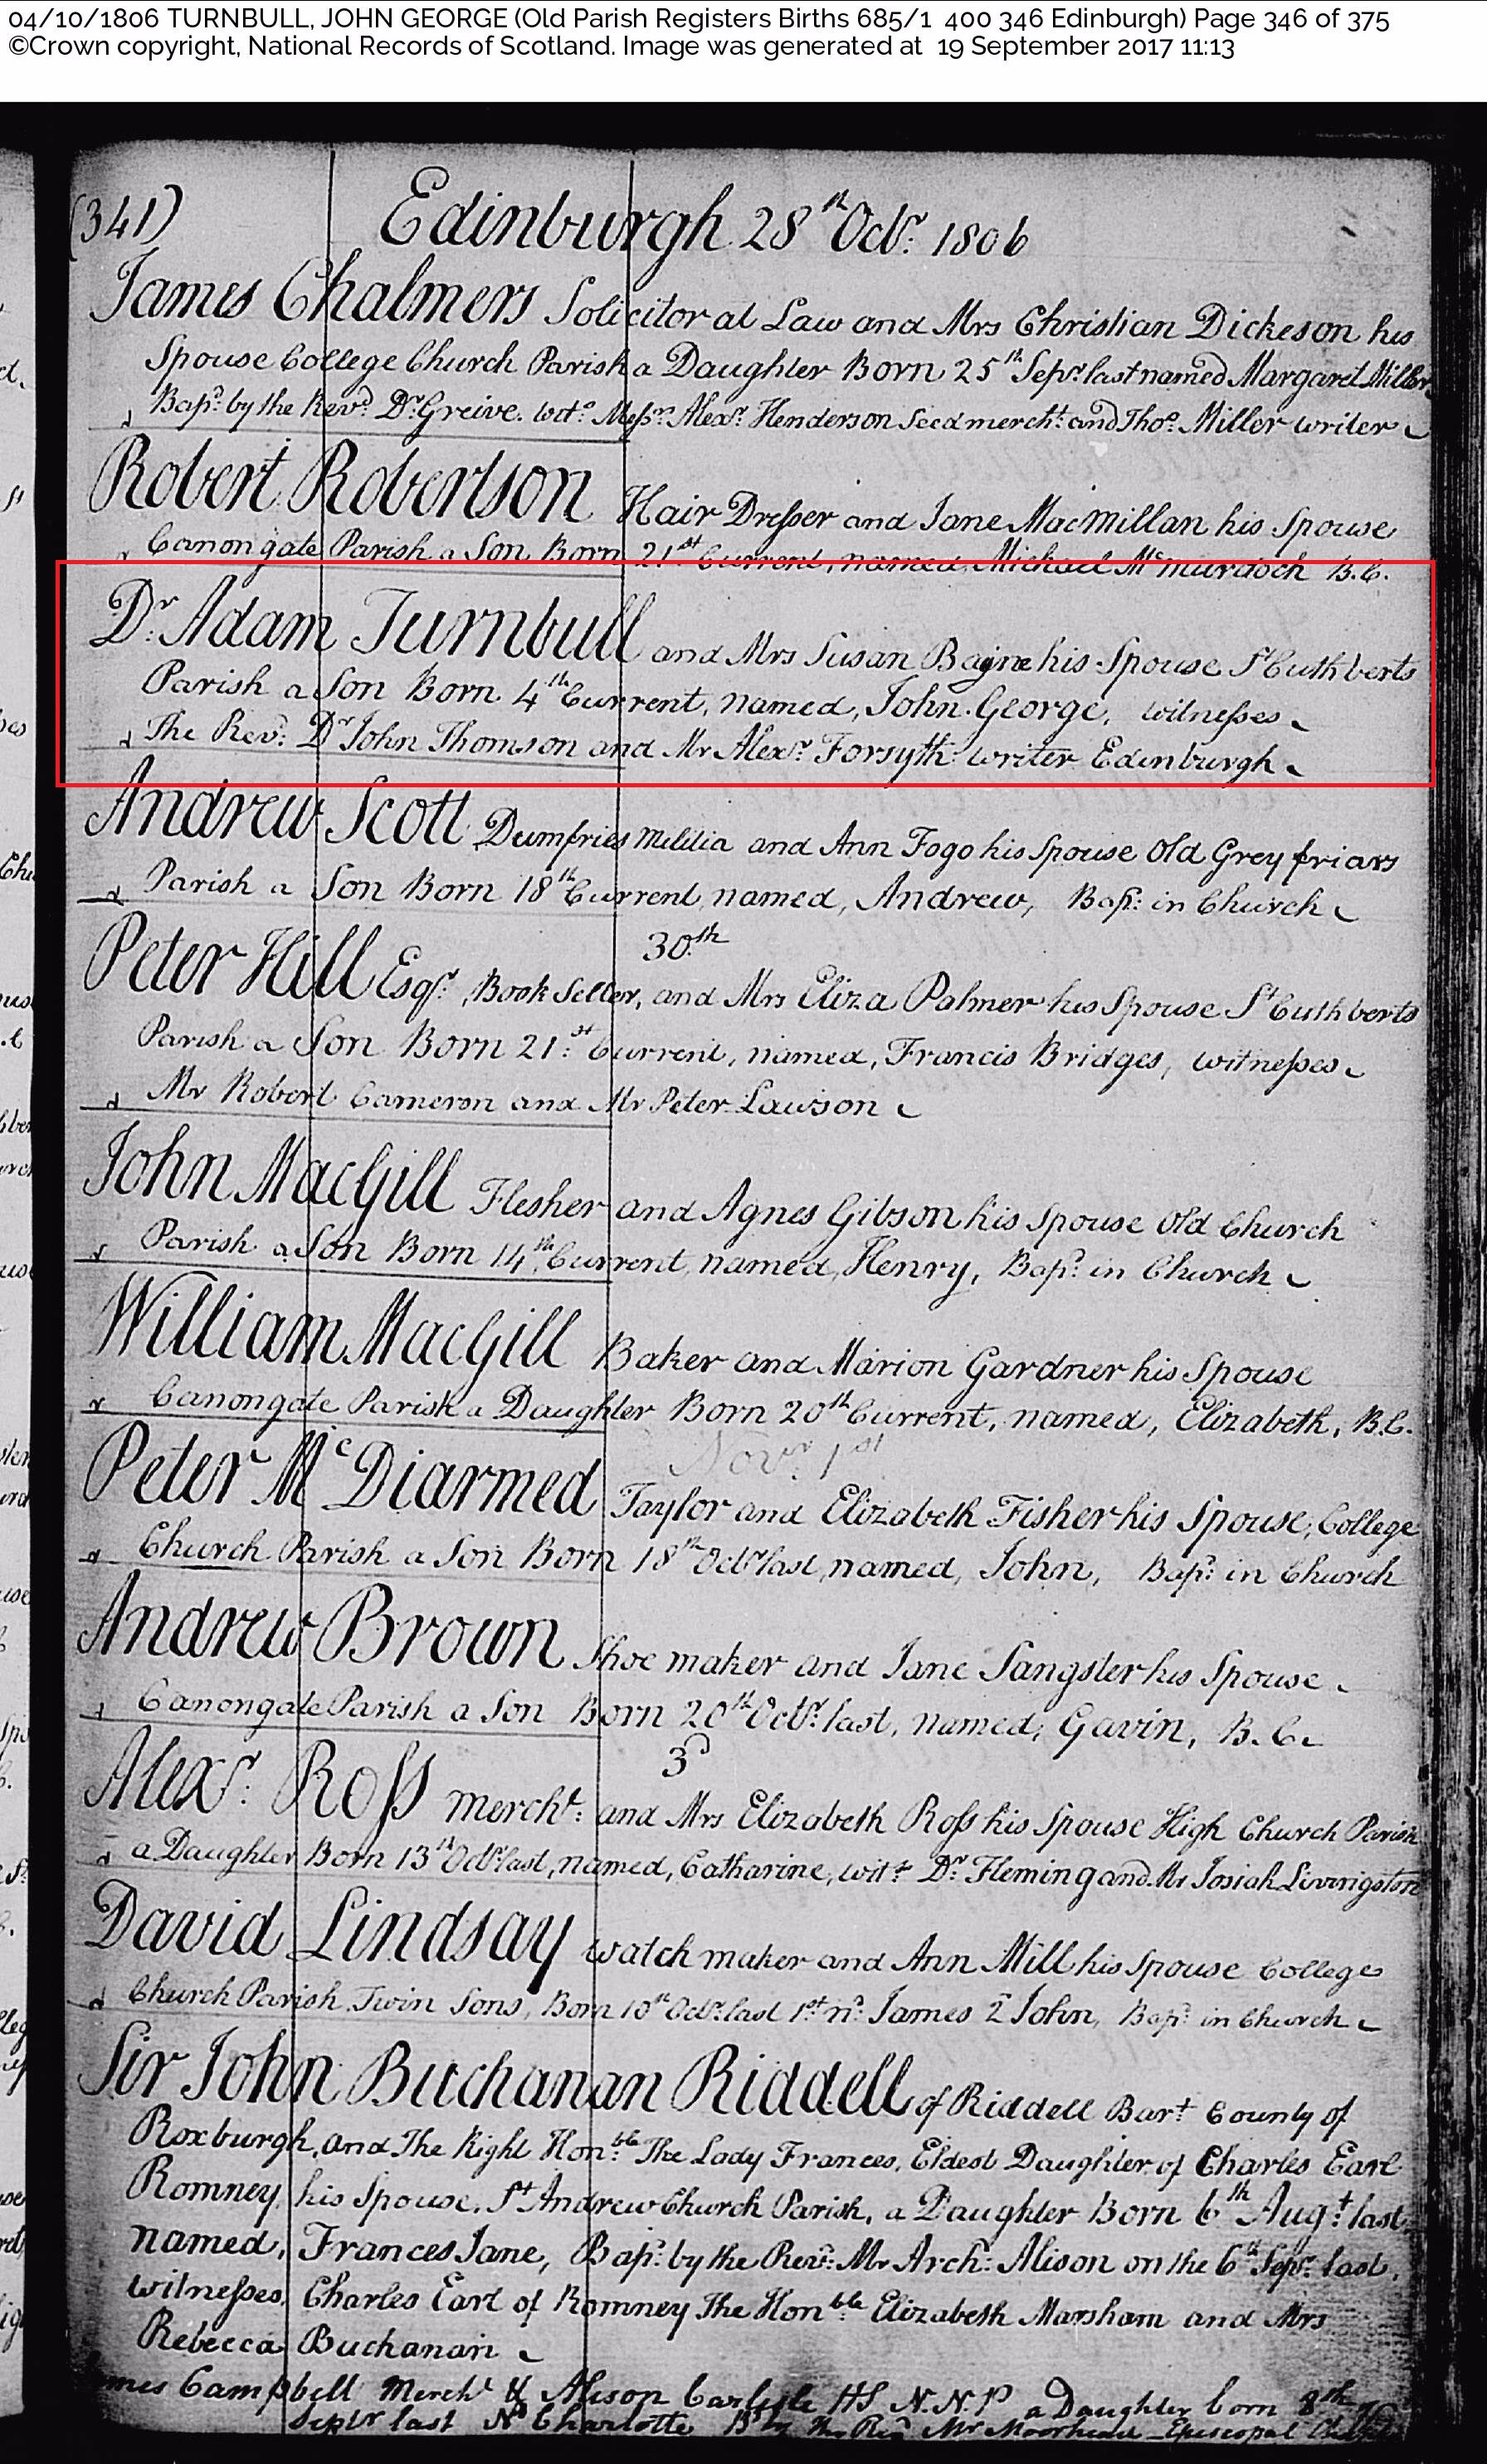 04/10/1806 TURNBULL, JOHN GEORGE (Old Parish Registers Births 685/1 400 346 Edinburgh) Page 346 of 375
©Crown copyright, National Records of Scotland. Image was generated at 19 September 2017 11:13
(341) Edinburgh 28th Octr. 1806
James Chalmers Solicitor at Law and Mrs Christian Dickeson his
Spouse College Church Parish a Daughter Born 25th Sepr. last named Margaret Miller
Bapd. by the Revd. Dr. Greive. wits. Messrs. Alexr. Henderson Seedmercht. and Thos. Miller writer
Robert Robertson Hair Dresser and Jane MacMillan his Spouse
Canongate Parish a Son Born 21st Current, named, Michael McMurdoch B.C.
Dr. Adam Turnbull and Mrs Susan Bayne his Spouse St Cuthberts
Parish a Son Born 4th Current, named, John George, witnesses
The Revd. Dr John Thomson and Mr Alexr. Forsyth writer Edinburgh
Andrew Scott Dumfries Militia and Ann Fogo his Spouse Old Grey friars
Parish a Son Born 18th Current, named, Andrew, Bapd: in Church
30th
Peter Hill Esqr., Book Seller, and Mrs Eliza Palmer his Spouse St Cuthberts
Parish a Son Born 21st Current, named, Francis Bridges, witnesses
Mr Robert Cameron and Mr Peter Lawson
John MacGill Flesher and Agnes Gibson his Spouse Old Church
Parish a Son Born 14th Current, named, Henry, Bapd: in Church
William MacGill Baker and Marion Gardner his Spouse
Canongate Parish a Daughter Born 20th Current, named, Elizabeth, B.C.
Novr. 1st
Peter McDiarmed Taylor and Elizabeth Fisher his Spouse, College
Church Parish a Son Born 18th Octr last, named, John, Bapd: in Church
Andrew Brown Shoe maker and Jane Sangster his Spouse
Canongate Parish a Son Born 20th Octr. last, named, Gavin, B.C.
3d
Alexr. Ross Mercht: and Mrs Elizabeth Ross his Spouse High Church Parish
a Daughter Born 13th Octr last, named, Catharine, wits Dr. Fleming and Mr Josiah Livingston
David Lindsay watch maker and Ann Mill his Spouse College
Church Parish Twin Sons, Born 10th Octr. last 1st nd. James 2 John, Bapd: in Church
Sir John Buchanan Riddell of Riddell Bart County of
Roxburgh, and The Right Honble The Lady Frances, Eldest Daughter of Charles Earl
Romney, his Spouse, St Andrew Church Parish, a Daughter Born 6th Augt last
named, Frances Jane, Bapd: by the Revd: Mr Arch: Alison on the 6th Sepr. last,
witnesses, Charles Earl of Romney The Honble Elizabeth Marsham and Mrs
Rebecca Buchanan
Campbell Mercht & Alison Carlisle HS N.N.P a Daughter born 8th
Septr last Nd Charlotte Bd by the Revd Mr Moorhead Episcopal